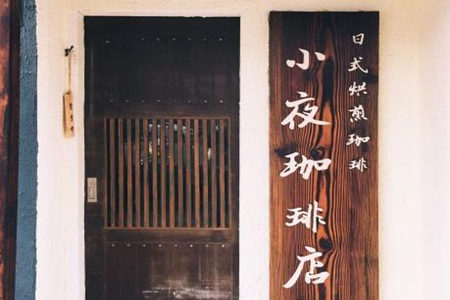 日式烘煎珈琲
小夜珈琲店